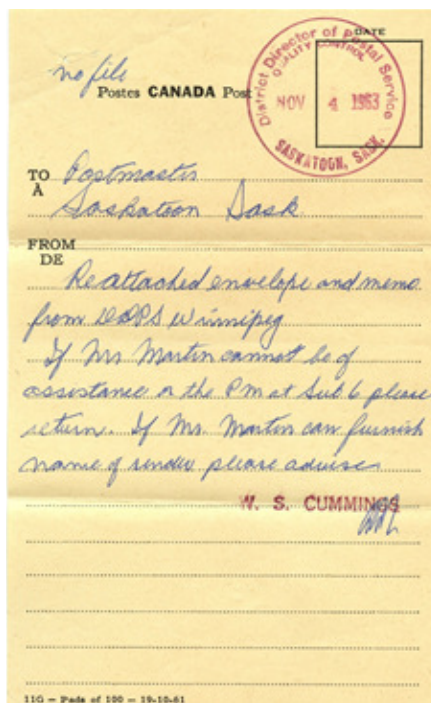 DATE
District Director of Postal Service
QUALITY CONTROL
NOV 4 1963
SASKATOON, SASK.
no file
Postes CANADA Post
TO Postmaster
A Saskatoon Sask
FROM
DE
Re attached envelope and memo
from DDPS Winnipeg
If Mrs Martin cannot be of
assistance or the P M at Sub 6 please
return. If Mrs. Martin can furnish
name of sender please advise
W. S. CUMMINGS
11G — Pads of 100 — 19-10-61